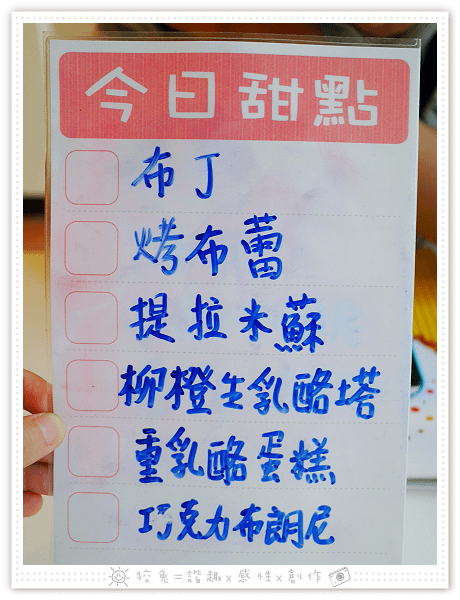 今日甜點
布丁
烤布蕾
提拉米蘇
柳橙生乳酪塔
重乳酪蛋糕
巧克力布朗尼
狡兔=諧趣x感性x創作